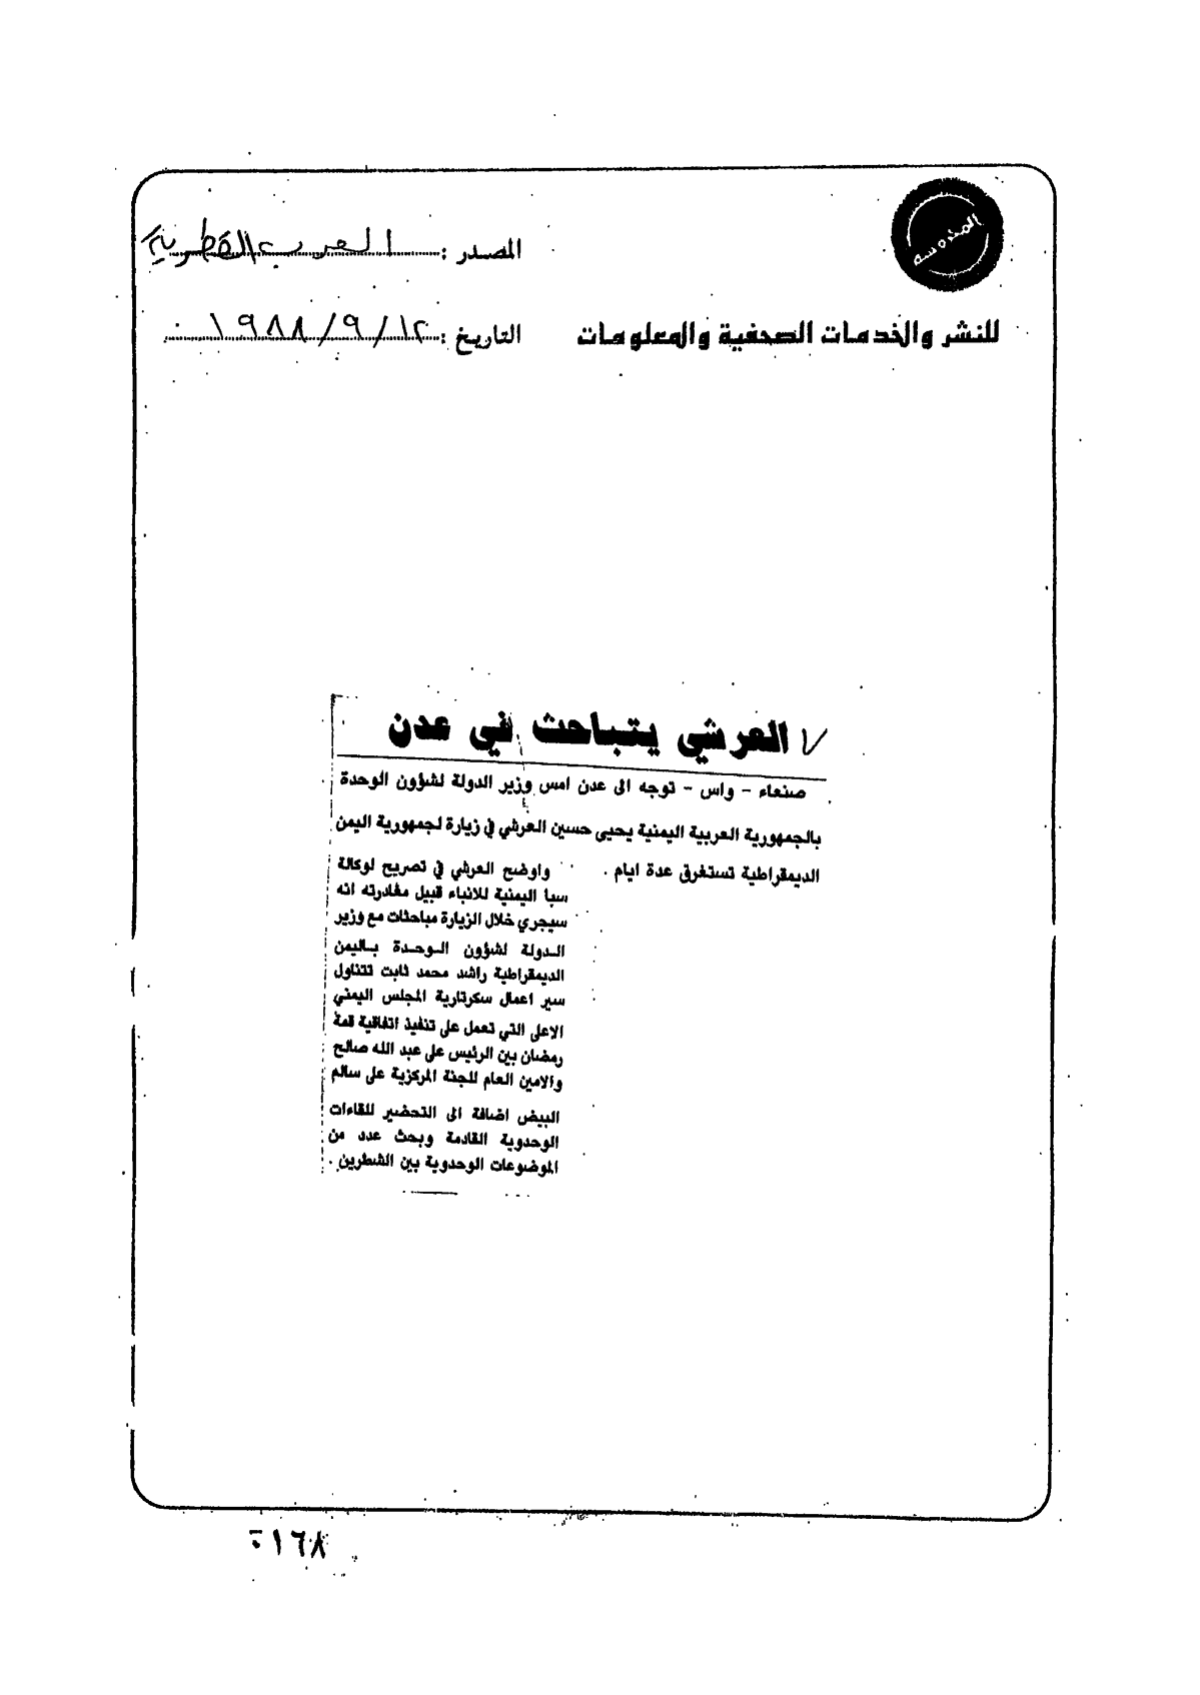 المصدر : العرب القطرية
للنشر والخدمات الصحفية والمعلومات
التاريخ : ١٢/٩/١٩٨٨
العرشي يتباحث في عدن
صنعاء - واس - توجه الى عدن امس وزير الدولة لشؤون الوحدة
بالجمهورية العربية اليمنية يحيى حسين العرشي في زيارة لجمهورية اليمن
الديمقراطية تستغرق عدة ايام .
واوضح العرشي في تصريح لوكالة
سبا اليمنية للانباء قبيل مغادرته انه
سيجري خلال الزيارة مباحثات مع وزير
الدولة لشؤون الوحدة باليمن
الديمقراطية راشد محمد ثابت تتناول
سير اعمال سكرتارية المجلس اليمني
الاعلى التي تعمل على تنفيذ اتفاقية قمة
رمضان بين الرئيس على عبد الله صالح
والامين العام للجنة المركزية على سالم
البيض اضافة الى التحضير للقاءات
الوحدوية القادمة وبحث عدد من
الموضوعات الوحدوية بين الشطرين .
٠١٦٨